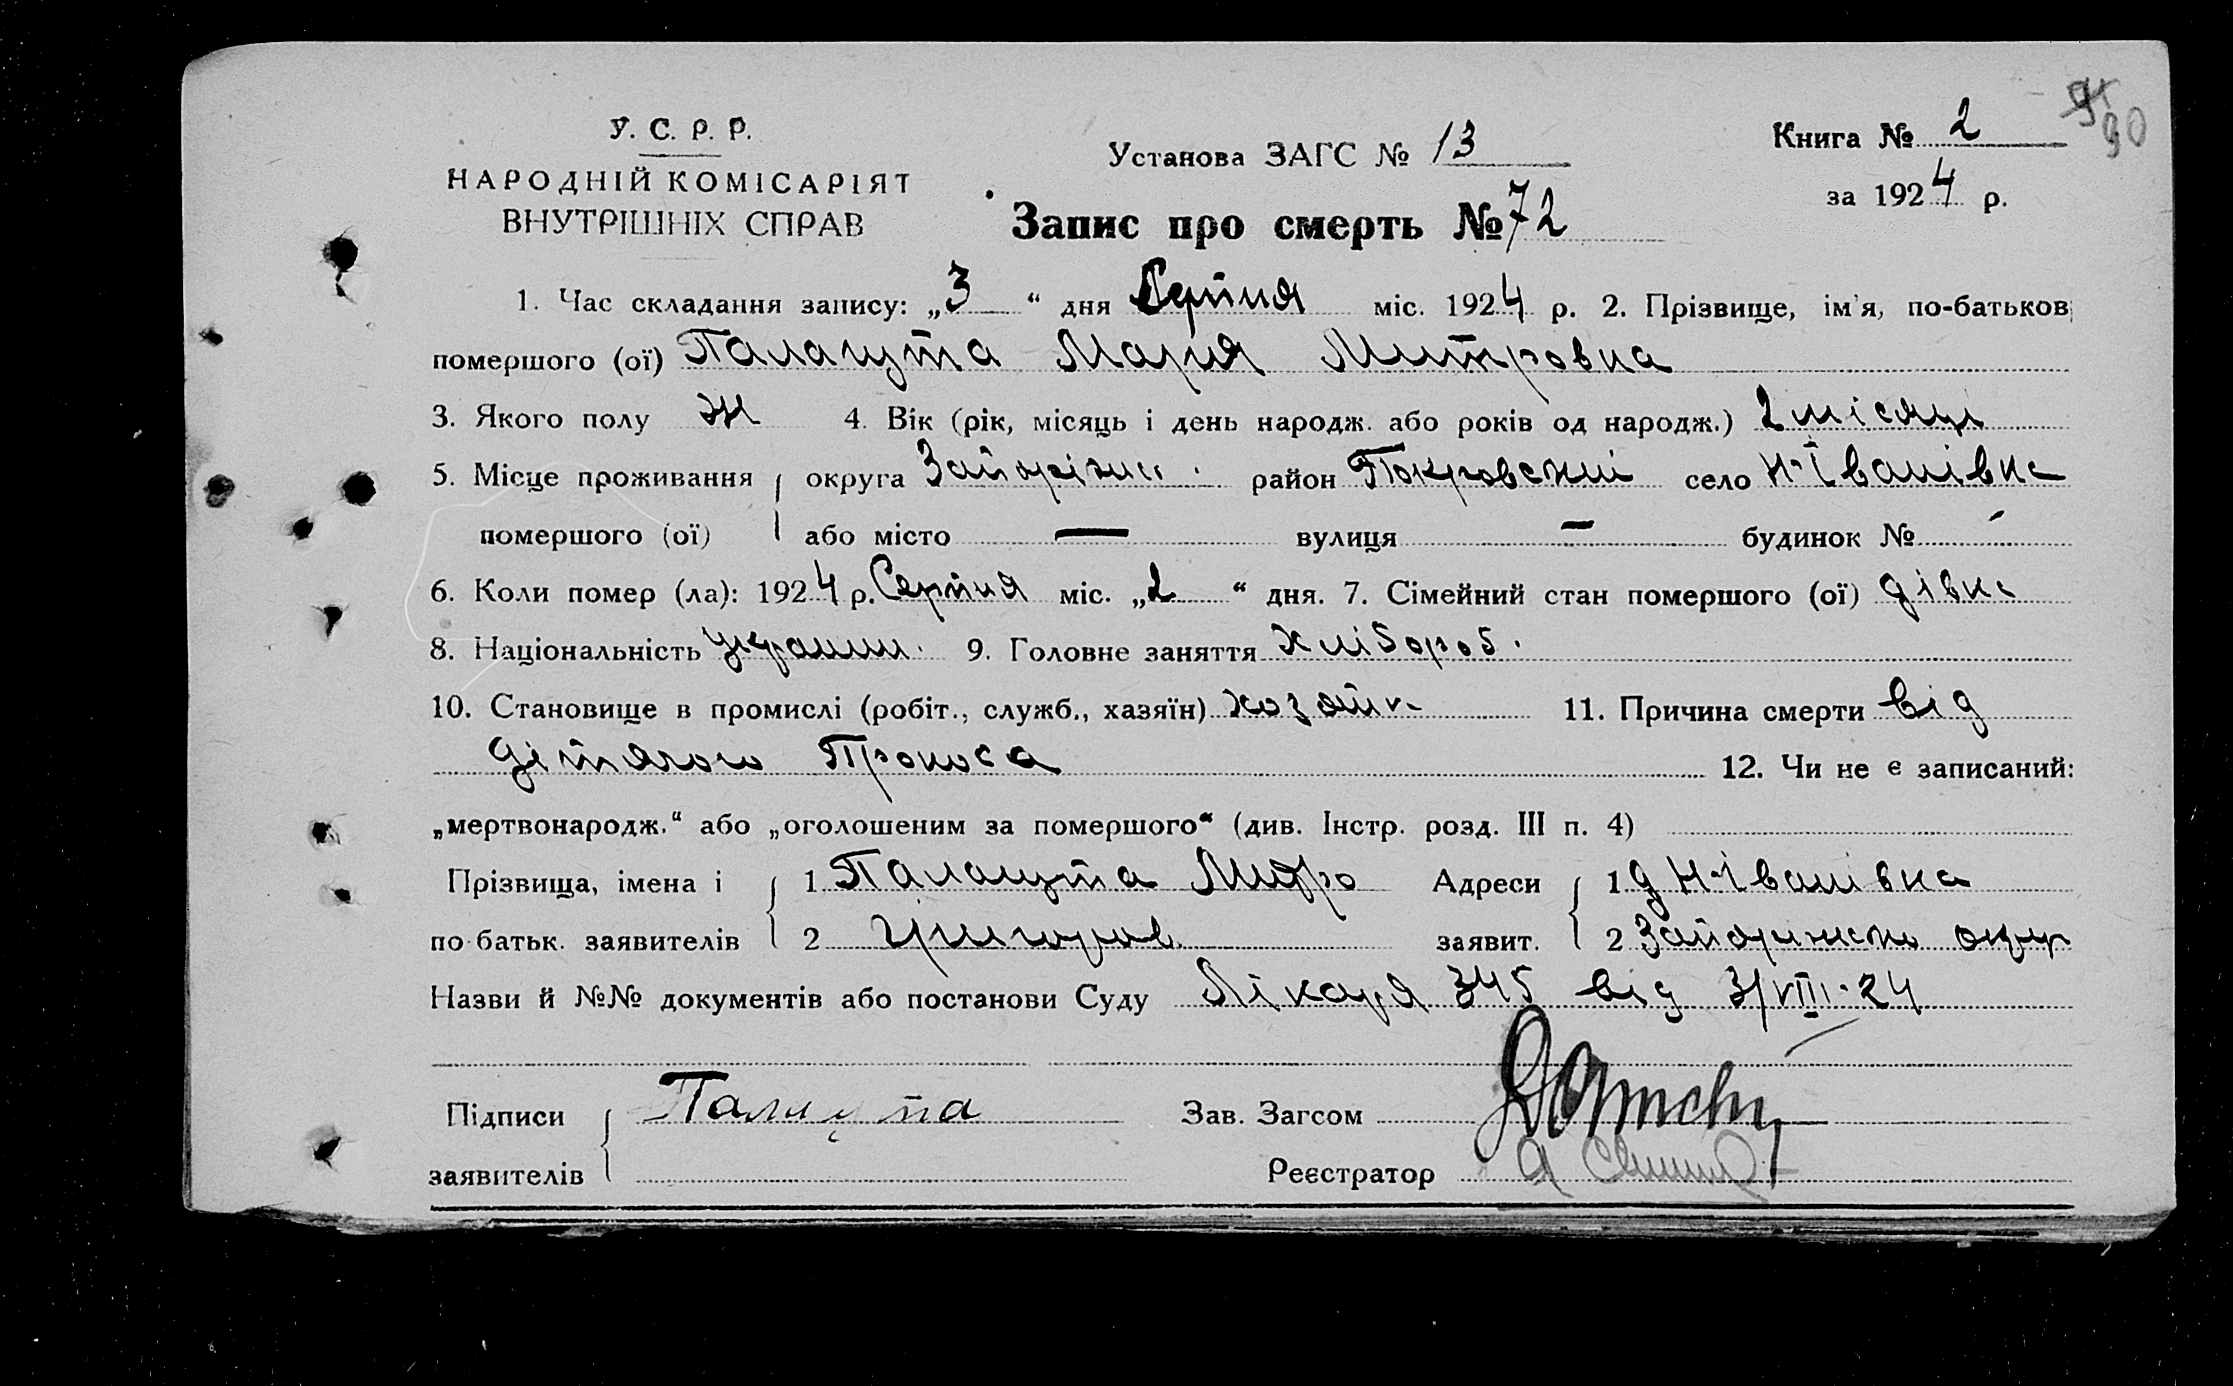 90
У. С. Р. Р.
НАРОДНІЙ КОМІСАРІЯТ
ВНУТРІШНІХ СПРАВ
Установа ЗАГС № 13
Книга № 2
за 1924 р.
Запис про смерть № 72
1. Час складання запису: „3“ дня Серпня міс. 1924 р. 2. Прізвище, ім'я, по-батьков
помершого (ої) Палагута Мария Митровна
3. Якого полу ж 4. Вік (рік, місяць і день народж. або років од народж.) 2 місяця
5. Місце проживання округа Запоріжск. район Покровский село Н-Іванівка
помершого (ої) або місто — вулиця — будинок № -
6. Коли помер (ла): 1924 р. Серпня міс. „2“ дня. 7. Сімейний стан помершого (ої) дівка
8. Національність украин. 9. Головне заняття хлібороб.
10. Становище в промислі (робіт., служб., хазяїн) хозяїн 11. Причина смерти від
дітячого Проноса 12. Чи не є записаний:
„мертвонародж.“ або „оголошеним за помершого“ (див. Інстр. розд. III п. 4)
Прізвища, імена і 1 Палагута Митро Адреси 1 д Н-Іванівка
по батьк. заявителів 2 Григоров. заявит. 2 Запорижско окр
Назви й №№ документів або постанови Суду Лікаря 345 від 3/VIII-24
Підписи Палагута Зав. Загсом
заявителів Реєстратор